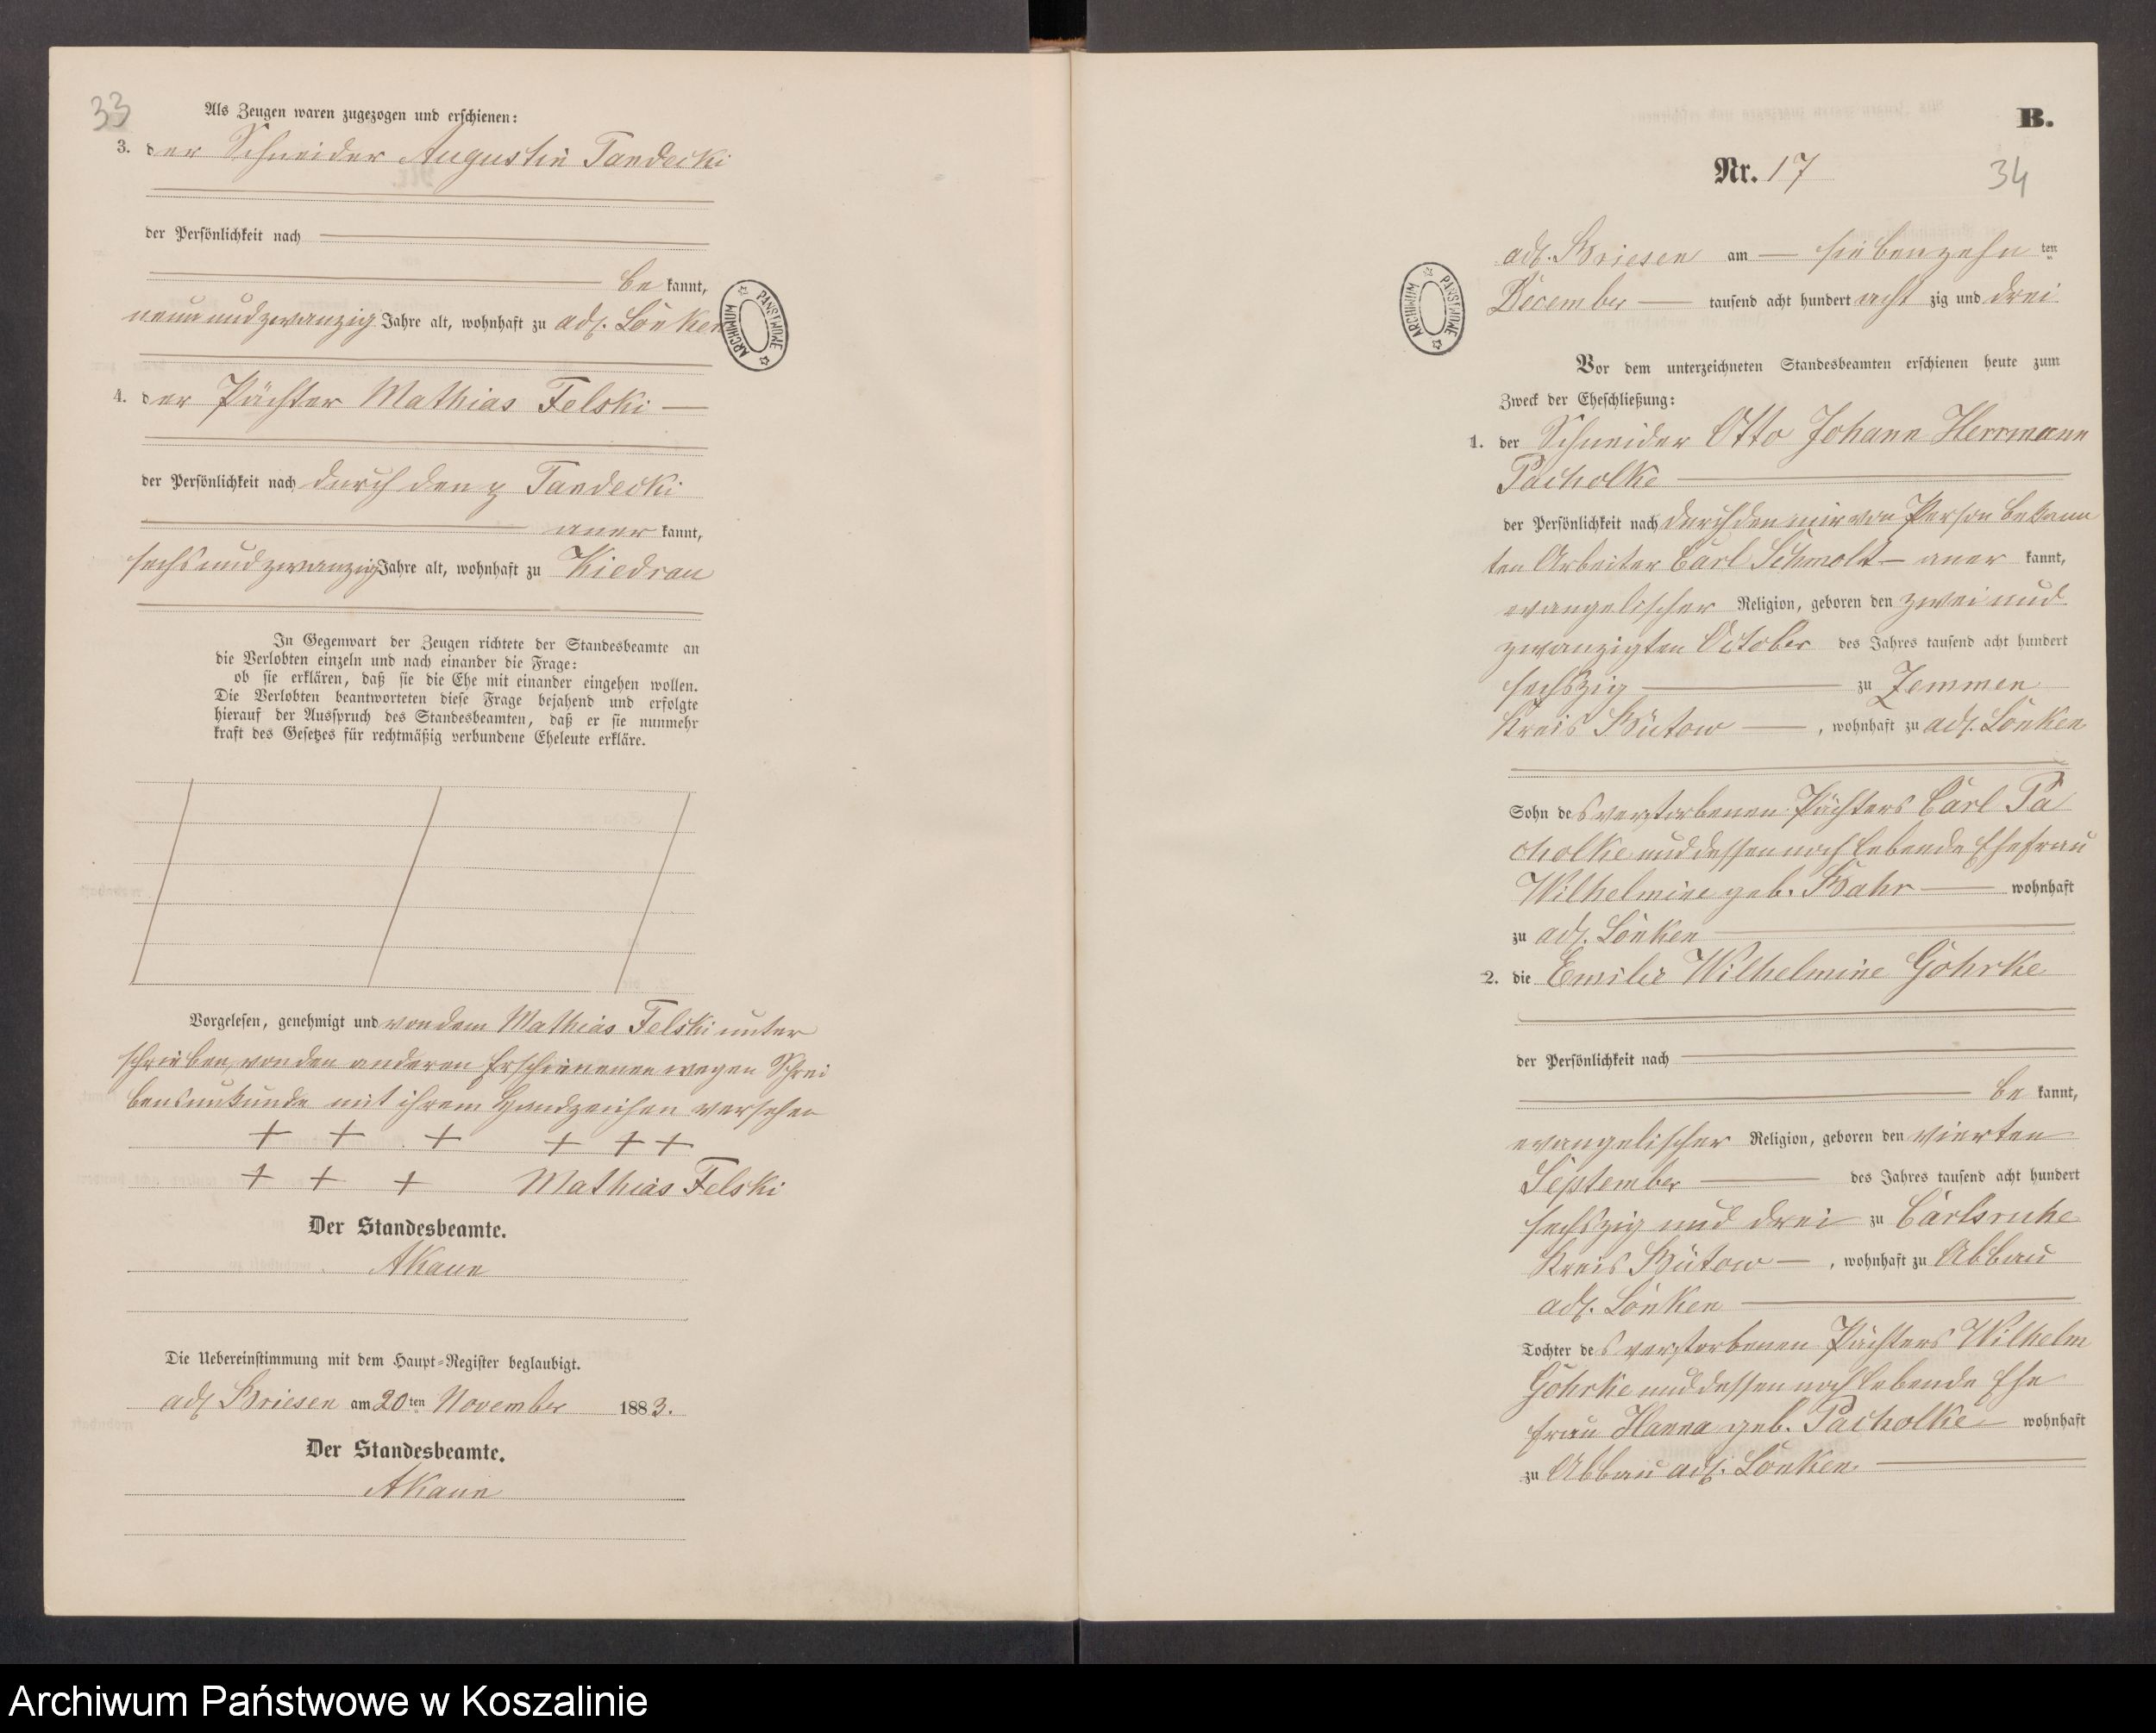 33
Als Zeugen waren zugezogen und erschienen:
3. der Schneider Augustin Tandecki
der Persönlichkeit nach
be kannt,
neunundzwanzig Jahre alt, wohnhaft zu adl. Lonken
4. der Pächter Mathias Felski
der Persönlichkeit nach durch den p Tandecki
aner kannt,
sechsundzwanzig Jahre alt, wohnhaft zu Kiedrau
In Gegenwart der Zeugen richtete der Standesbeamte an
die Verlobten einzeln und nach einander die Frage:
ob sie erklären, daß sie die Ehe mit einander eingehen wollen.
Die Verlobten beantworteten diese Frage bejahend und erfolgte
hierauf der Ausspruch des Standesbeamten, daß er sie nunmehr
kraft des Gesetzes für rechtmäßig verbundene Eheleute erkläre.
Vorgelesen, genehmigt und von dem Mathias Felski unter
schrieben, von den anderen Erschienenen wegen Schrei
bensunkunde mit ihrem Handzeichen versehen
+ + + + + +
+ + + Mathias Felski
Der Standesbeamte.
AKaun
Die Uebereinstimmung mit dem Haupt-Register beglaubigt.
adl Briesen am 20ten November 1883.
Der Standesbeamte.
AKaun
ARCHIWUM PAŃSTWOWE
B.
Nr. 17
34
adl. Briesen am siebenzehn ten
December tausend acht hundert acht zig und drei
ARCHIWUM PAŃSTWOWE
Vor dem unterzeichneten Standesbeamten erschienen heute zum
Zweck der Eheschließung:
1. der Schneider Otto Johann Herrmann
Pacholke
der Persönlichkeit nach durch den mir von Person bekann
ten Arbeiter Carl Schmolt aner kannt,
evangelischer Religion, geboren den zwei und
zwanzigten October des Jahres tausend acht hundert
sechszig zu Zemmen
Kreis Bütow, wohnhaft zu adl. Lonken
Sohn des verstorbenen Pächters Carl Pa
cholke und dessen noch lebende Ehefrau
Wilhelmine geb. Bahr wohnhaft
zu adl. Lonken
2. die Emilie Wilhelmine Göhrke
der Persönlichkeit nach
be kannt,
evangelischer Religion, geboren den vierten
September des Jahres tausend acht hundert
sechszig und drei zu Carlsruhe
Kreis Bütow, wohnhaft zu Abbau
adl. Lonken
Tochter des verstorbenen Pächters Wilhelm
Göhrke und dessen noch lebende Ehe
frau Hanna geb. Pacholke wohnhaft
zu Abbau adl. Lonken.
Archiwum Państwowe w Koszalinie